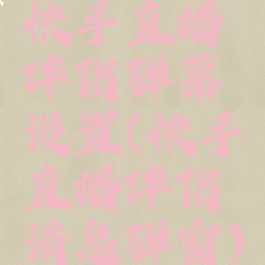 快手直播
伴侣弹幕
设置(快手
直播伴侣
消息弹窗)